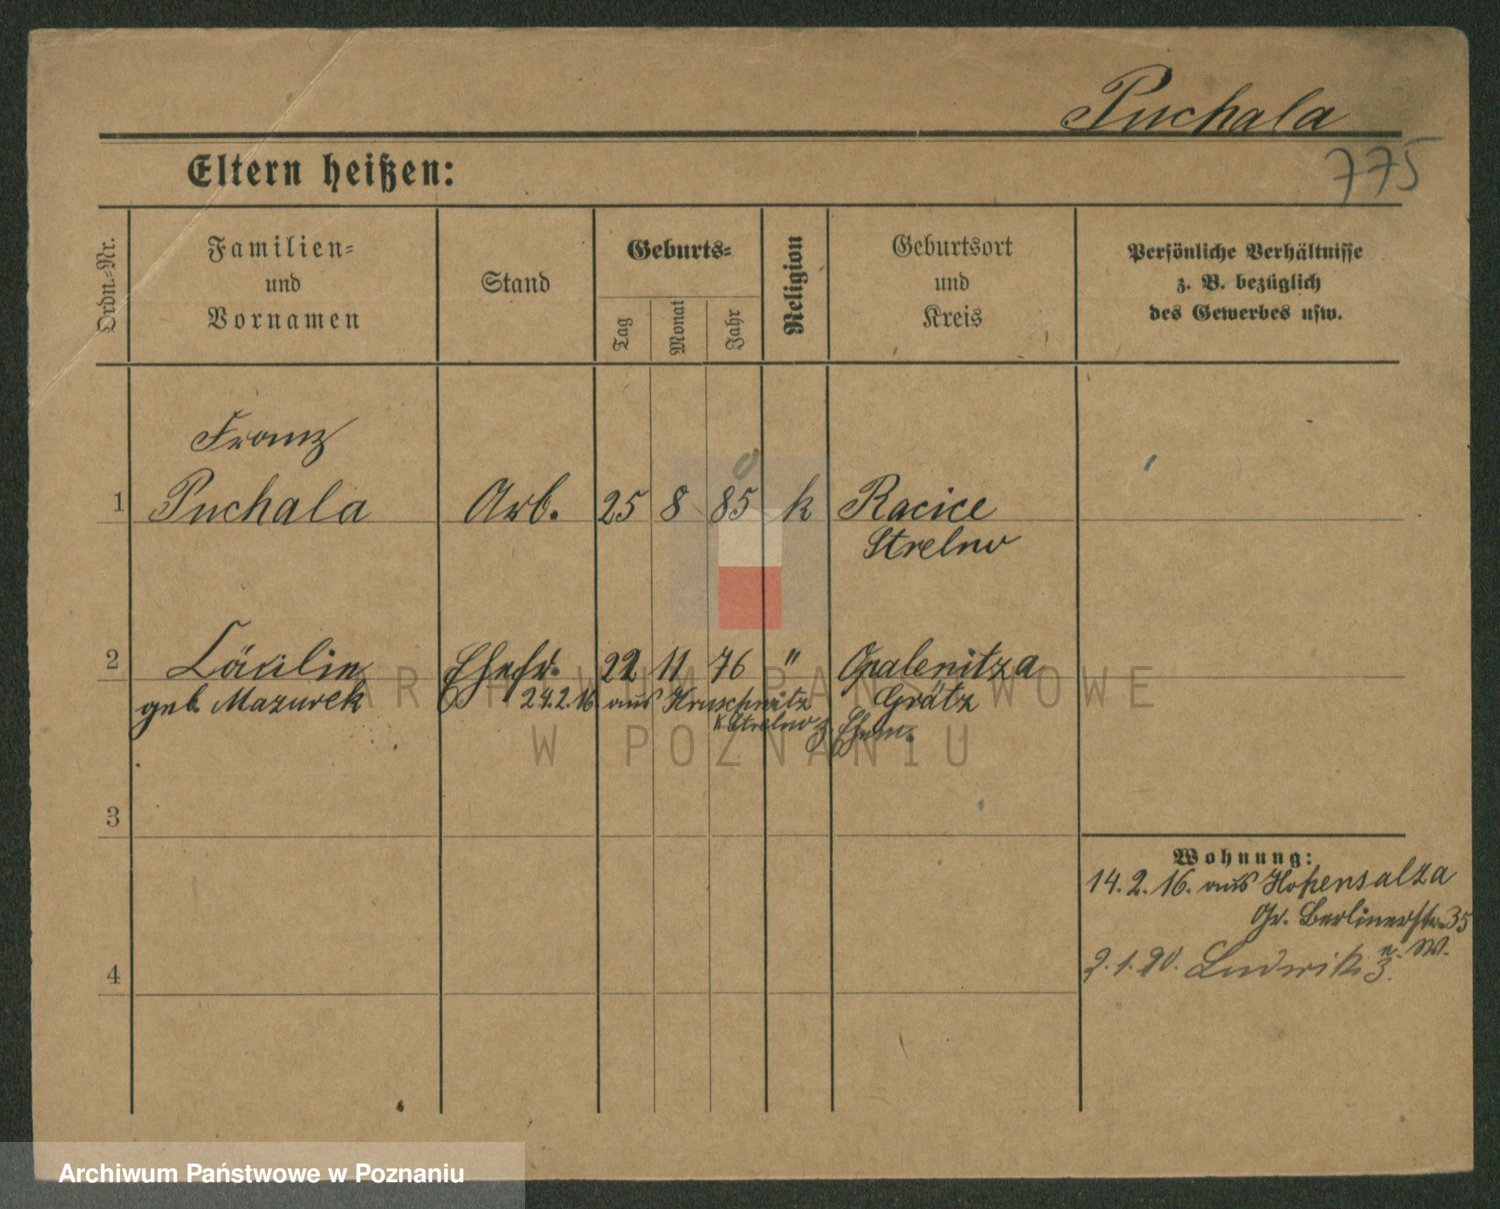 Puchala
775
Eltern heißen:
Ordn.-Nr.
Familien-
und
Vornamen
Stand
Geburts-
Tag
Monat
Jahr
Religion
Geburtsort
und
Kreis
Persönliche Verhältnisse
z. B. bezüglich
des Gewerbes usw.
Franz
1 Puchala Arb. 25 8 85 k Racice
Strelno
2 Cäcilie Ehefr. 22 11 76 " Opalenitza
geb. Mazurek 24.2.16 aus Kruschwitz Grätz
K Strelno z. Ehem.
3
Wohnung:
14. 2. 16. aus Hohensalza
Gr. Berlinerstr. 35
2. 1. 20. Ludwik z. n. W.
4
ARCHIWUM PAŃSTWOWE
W POZNANIU
Archiwum Państwowe w Poznaniu